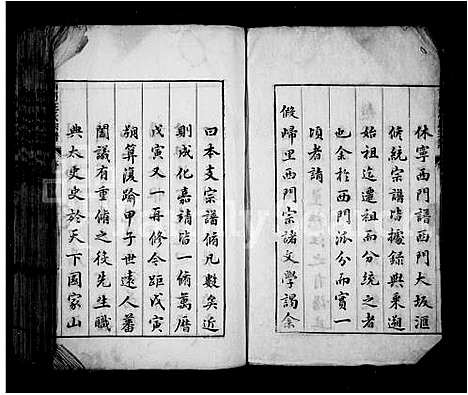 休寧西門譜西門大坂滙
脩統宗譜皆據錄與乘遡
始祖迄遷祖而分統之者
也余於西門派分而實一
頃者請
假歸里西門宗諸文學謁余
曰本支宗譜脩凡數矣近
則成化嘉靖皆一脩萬曆
戊寅又一再脩今距戊寅
朔算復踰甲子世遠人蕃
闔議有重脩之役先生職
典太史史於天下國家山